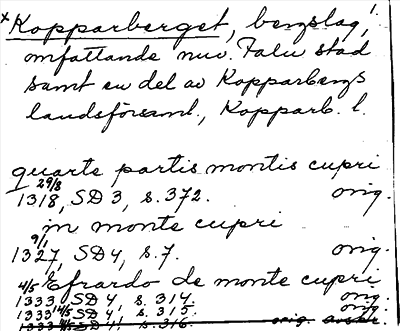 x Kopparberget, bergslag, 1.
omfattande nuv. Falu stad
samt en del av Kopparbergs
landsförsaml., Kopparb. l.
quarte partis montis cupri
29/8 1318, SD 3, s. 372. orig.
in monte cupri
9/1 1327, SD 4, s. 7. orig.
Efrardo de monte cupri
4/5 1333 SD 4, s. 314. orig.
14/5 1333 SD 4, s. 315. orig.
1333 SD 4, s. 316. orig. avskr.